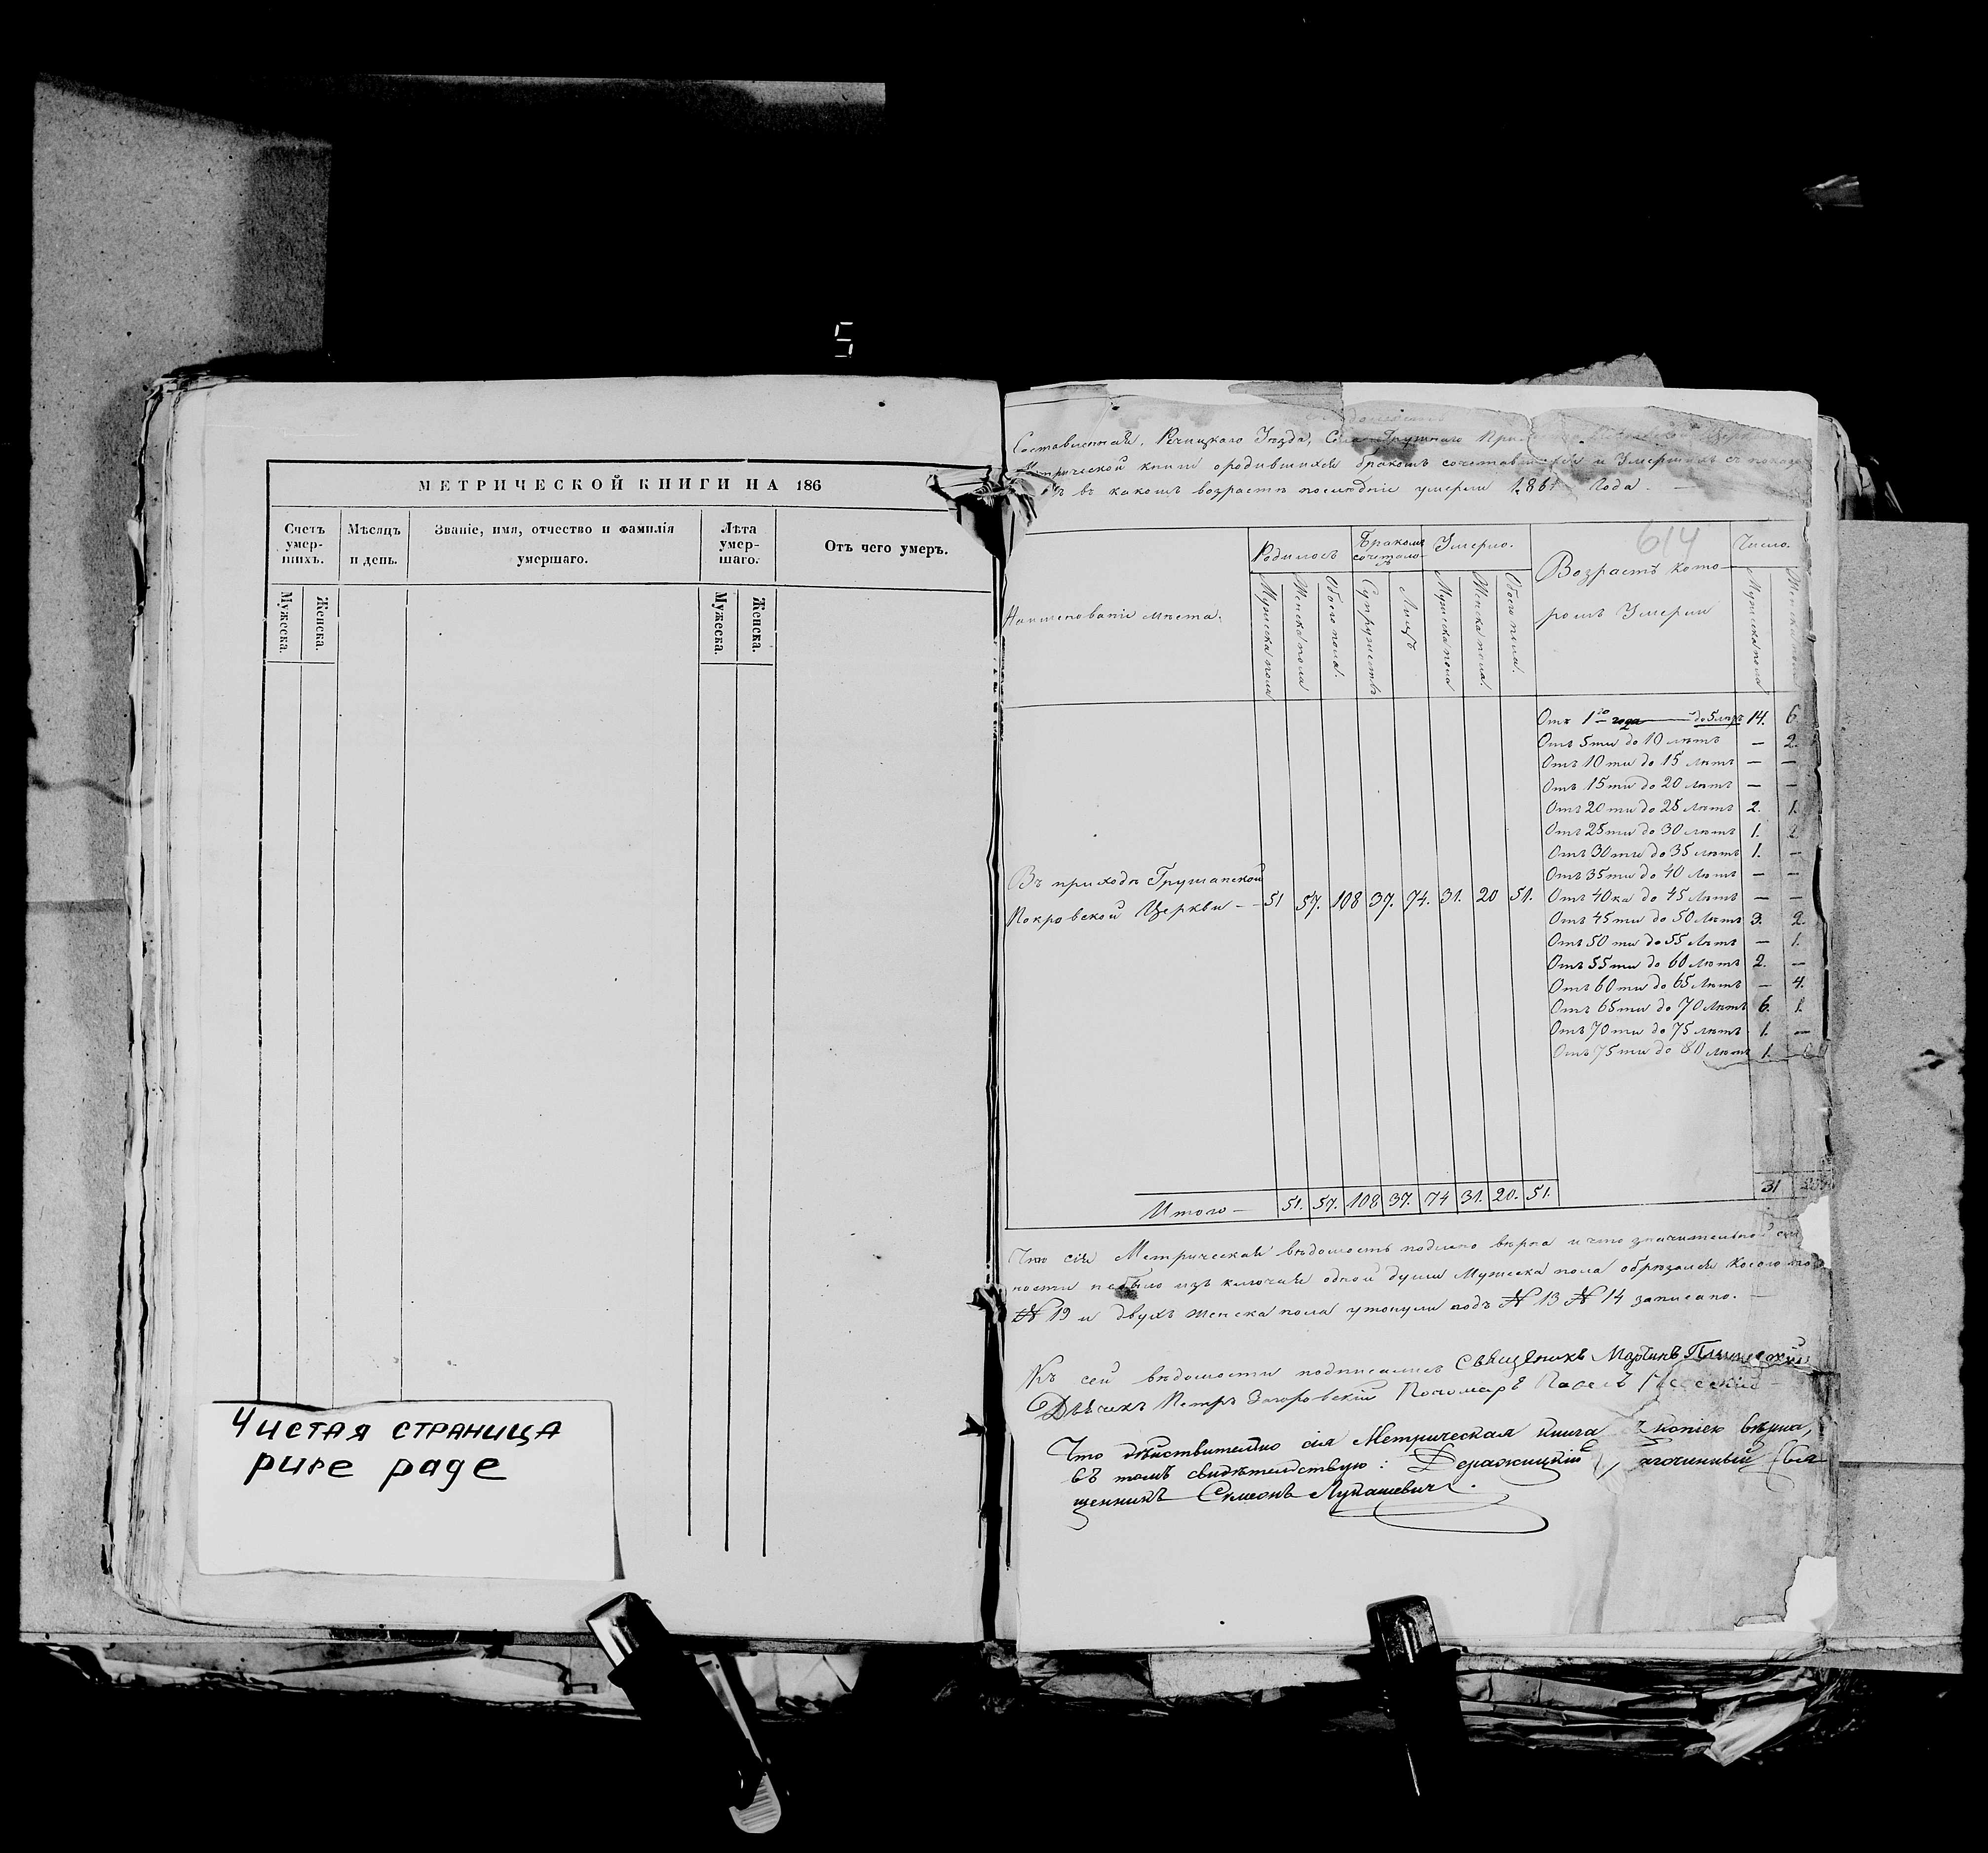 5
МЕТРИЧЕСКОЙ КНИГИ НА 186
Счетъ умер-шихъ.
Мѣсяцъ и день.
Званіе, имя, отчество и фамилія умершаго.
Лѣта умер-шаго.
Отъ чего умеръ.
Мужеска.
Женска.
Мужеска.
Женска.
Чистая страница
pure page
Составленная, Речицкаго Уѣзда, Села
книги о родившихся бракомъ сочетавшихся и Умершихъ съ
въ какомъ возрастѣ послѣдніе умерли 1861 Года.
614
Наименованіе мѣста.
Родилось
Бракомъ сочеталось
Умерло.
Возрастъ кото-
ромъ Умерли
Число.
Мужеска пола
Женска пола
Обоего пола.
Супружествъ
Лицъ
Мужеска пола
Женска пола.
Обоего пола.
Мужеска пола
Женска пола
Отъ 1го года до 5 лѣтъ 14. 6
Отъ 5ти до 10 лѣтъ — 2.
Отъ 10ти до 15 лѣтъ — —
Отъ 15ти до 20 лѣтъ — —
Отъ 20ти до 25 лѣтъ 2. 1.
Отъ 25ти до 30 лѣтъ 1. 2.
Отъ 30ти до 35 лѣтъ 1. —
Отъ 35ти до 40 лѣтъ — —
Въ приходѣ Грушанской
Покровской Церкви - - 51 57. 108 37. 74. 31. 20 51.
Отъ 40ка до 45 лѣтъ — —
Отъ 45ти до 50 лѣтъ 3. 2.
Отъ 50ти до 55 лѣтъ — 1.
Отъ 55ти до 60 лѣтъ 2. —
Отъ 60ти до 65 лѣтъ — 4.
Отъ 65ти до 70 лѣтъ 6. 1.
Отъ 70ти до 75 лѣтъ 1. —
Отъ 75ти до 80 лѣтъ 1.
Итого — 51. 57. 108 37. 74 31. 20. 51. 31
Что сія Метрическая вѣдомость подлино вѣрна и что значительной
ности небыло изъ ключая одной души Мужеска пола обрѣзался косою
№ 19 и двухъ женска пола утонули подъ № 13 № 14 записано.
Къ сей вѣдомости подписались Священикъ Мартинъ
Дьячекъ Петръ Загоровскій Пономарь Павелъ
Что дѣйствительно сія Метрическая книга вѣрна,
въ томъ свидѣтельствую: Деражицкій Свя-
щенникъ Симеонъ Лукашевичъ.